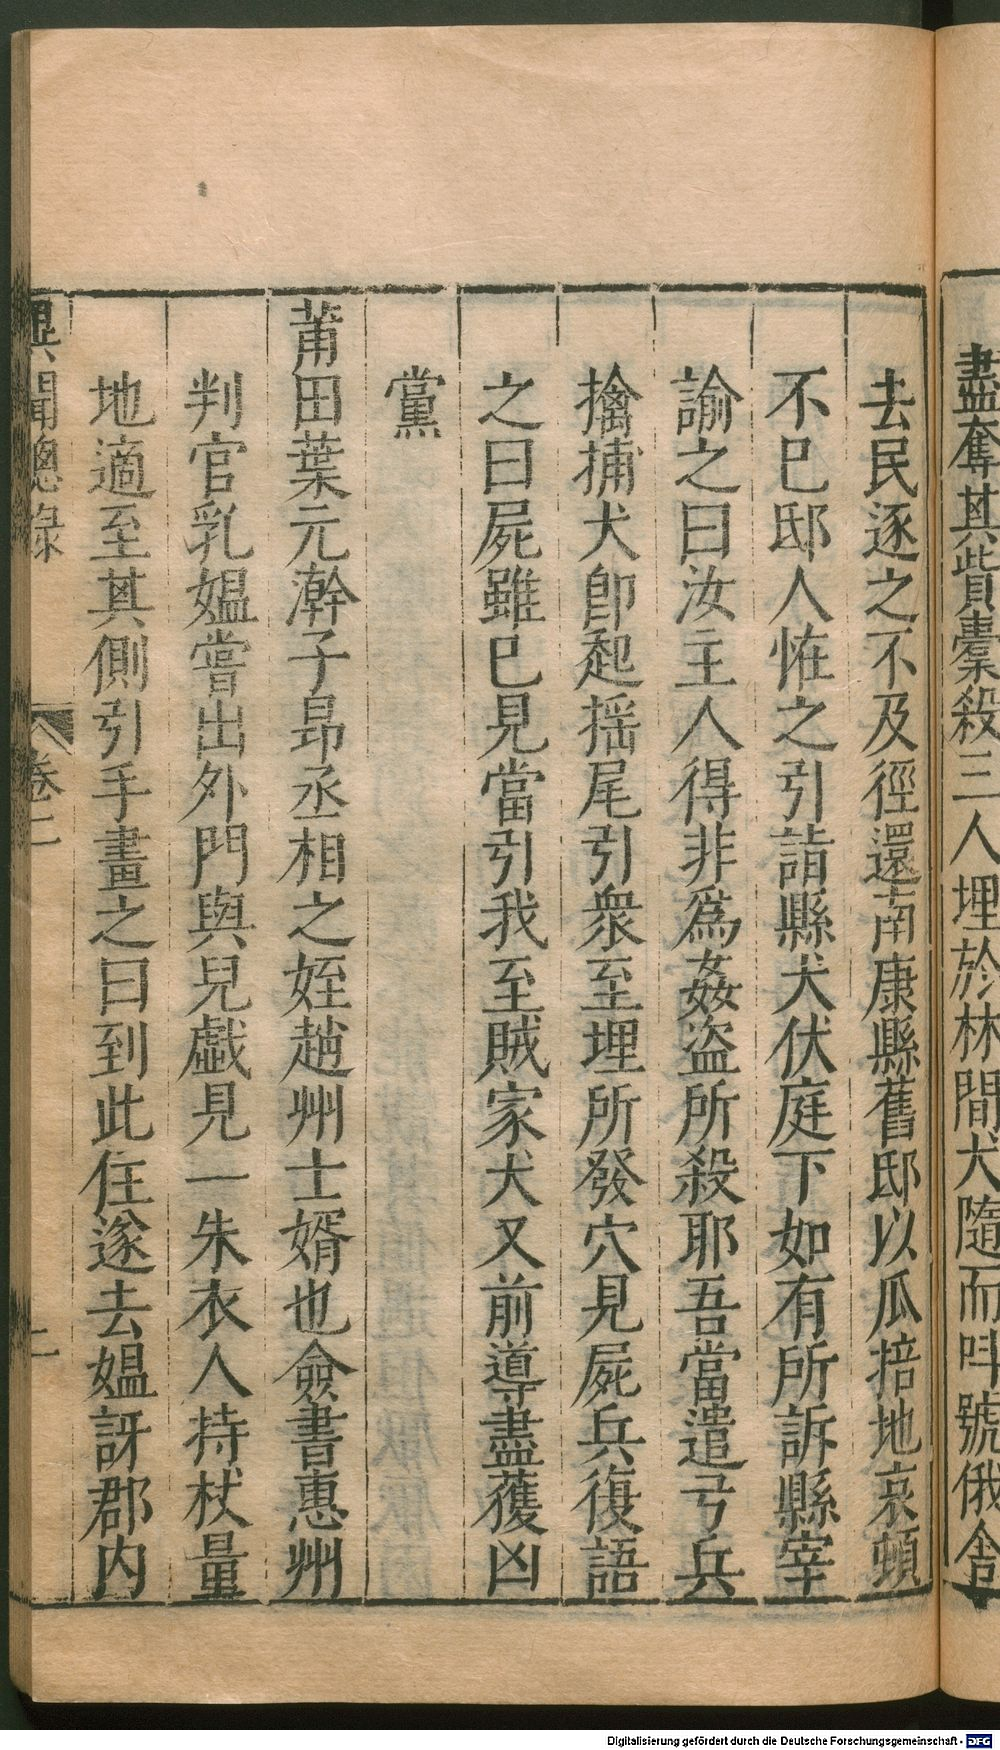 盡奪其貲橐殺三人埋於林間犬隨而呌號俄舍
去民逐之不及徑還南康縣舊邸以瓜掊地哀頓
不巳邸人恠之引詣縣犬伏庭下如有所訴縣宰
諭之曰汝主人得非爲姦盜所殺耶吾當遣弓兵
擒捕犬卽起揺尾引衆至埋所發穴見屍兵復語
之曰屍雖巳見當引我至賊家犬又前導盡獲凶
黨
莆田葉元澣子昻丞相之姪趙州士婿也僉書惠州
判官乳媼嘗出外門與兒戲見一朱衣人持杖量
地適至其側引手畫之曰到此住遂去媼訝郡内
異聞總錄 卷二 二
Digitalisierung gefördert durch die Deutsche Forschungsgemeinschaft - DFG